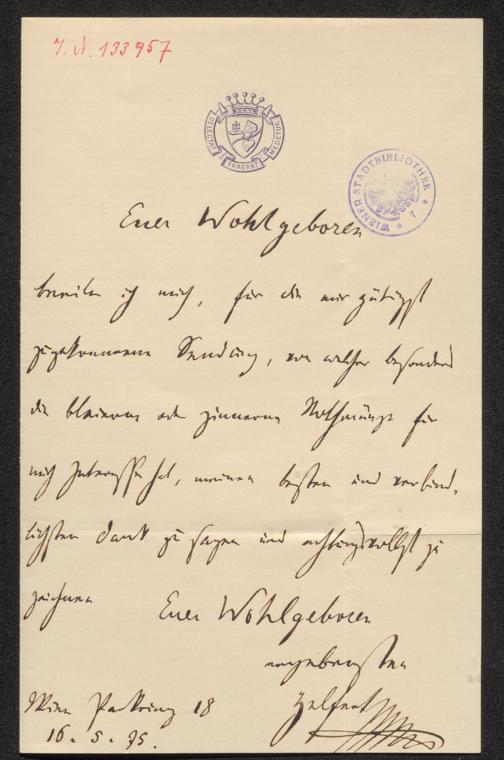 I. N. 133957
DELECTAT FRAGRAT MEDETUR
WIENER STADTBIBLIOTHEK
Euer Wohlgeboren
beeile ich mich, für die mir gütigst
zugekommene Sendung, von welcher besonders
die bleierne oder zinnerne Nothmünze für
mich Interesse hat, meinen besten und verbind-
lichsten Dank zu sagen und achtungsvollst zu
zeichnen Euer Wohlgeboren
ergebensten
Helfert
Wien Parkring 18
16. 5. 95.